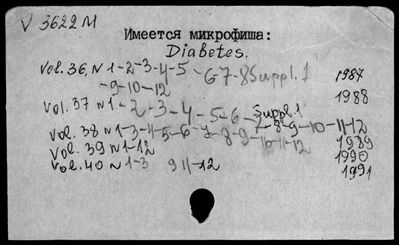 V 3622 М
Имеется микрофиша:
Diabetes.
Vol. 36, N 1-2-3-4-5-6-7-8 Suppl. 1 1987
-9-10-12
Vol. 37 N 1-2-3-4-5-6-7-8-9-10-11-12 Suppl. 1 1988
Vol. 38 N 1-3-4-5-6-7-8-9-10-11-12 1989
Vol. 39 N 1-12 1990
Vol. 40 N 1-3 9 11-12 1991